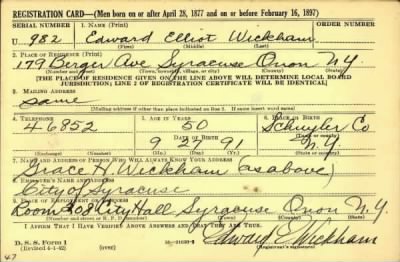 REGISTRATION CARD—(Men born on or after April 28, 1877 and on or before February 16, 1897)
SERIAL NUMBER 1. NAME (Print) ORDER NUMBER
U 982 Edward Elliot Wickham
(First) (Middle) (Last)
2. PLACE OF RESIDENCE (Print)
179 Berger Ave Syracuse Onon N Y
(Number and street) (Town, township, village, or city) (County) (State)
[THE PLACE OF RESIDENCE GIVEN ON THE LINE ABOVE WILL DETERMINE LOCAL BOARD
JURISDICTION; LINE 2 OF REGISTRATION CERTIFICATE WILL BE IDENTICAL]
3. MAILING ADDRESS
Same
[Mailing address if other than place indicated on line 2. If same insert word same]
4. TELEPHONE 5. AGE IN YEARS 6. PLACE OF BIRTH
4-6852 50 Schuyler Co
DATE OF BIRTH (Town or county)
9 27 91 N.Y.
(Mo.) (Day) (Yr.) (State or country)
7. NAME AND ADDRESS OF PERSON WHO WILL ALWAYS KNOW YOUR ADDRESS
Grace H. Wickham (as above)
8. EMPLOYER'S NAME AND ADDRESS
City of Syracuse
9. PLACE OF EMPLOYMENT OR BUSINESS
Room 208 City Hall Syracuse Onon N.Y.
(Number and street or R. F. D. number) (Town) (County) (State)
I AFFIRM THAT I HAVE VERIFIED ABOVE ANSWERS AND THAT THEY ARE TRUE.
D. S. S. Form 1
(Revised 4-1-42) (over)
Edward E Wickham
(Registrant's signature)
47